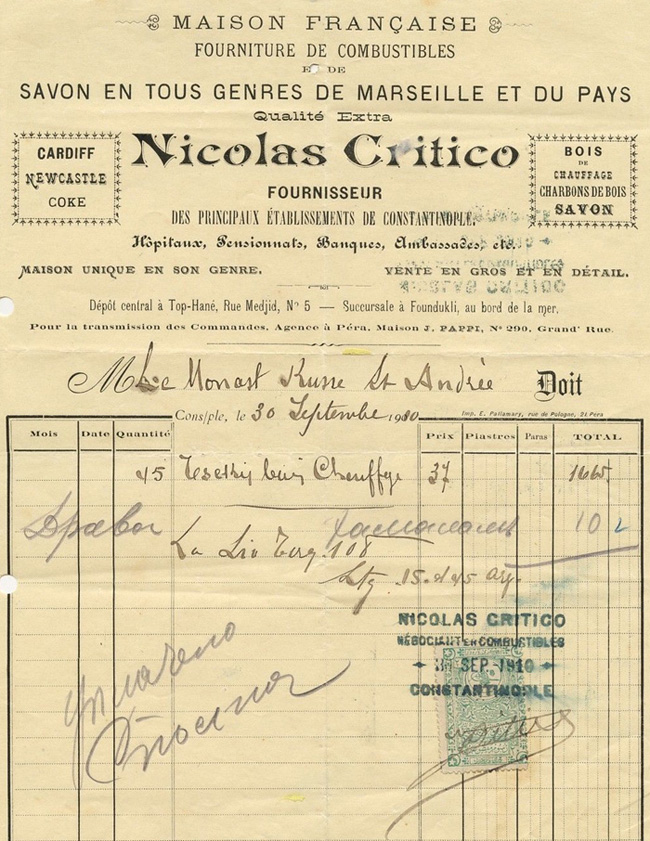 MAISON FRANÇAISE
FOURNITURE DE COMBUSTIBLES
ET DE
SAVON EN TOUS GENRES DE MARSEILLE ET DU PAYS
Qualité Extra
CARDIFF
NEWCASTLE
COKE
Nicolas Critico
BOIS
DE
CHAUFFAGE
CHARBONS DE BOIS
SAVON
FOURNISSEUR
DES PRINCIPAUX ÉTABLISSEMENTS DE CONSTANTINOPLE.
Hôpitaux, Pensionnats, Banques, Ambassades, etc.
MAISON UNIQUE EN SON GENRE. VENTE EN GROS ET EN DÉTAIL.
Dépôt central à Top-Hané, Rue Medjid, Nº 5 — Succursale à Foundukli, au bord de la mer.
Pour la transmission des Commandes, Agence à Péra, Maison J. PAPPI, Nº 290, Grand' Rue.
M Le Monast Russe St Andrée Doit
Cons/ple, le 30 Septembre 1910
Imp. E. Pallamary, rue de Pologne, 21 Péra
Mois Date Quantité Prix Piastres Paras TOTAL
45 Chauffge 37 1665
La Liv Turq. 108
Ltq 15. d 45 arg.
NICOLAS CRITICO
NÉGOCIANT EN COMBUSTIBLES
SEP. 1910
CONSTANTINOPLE